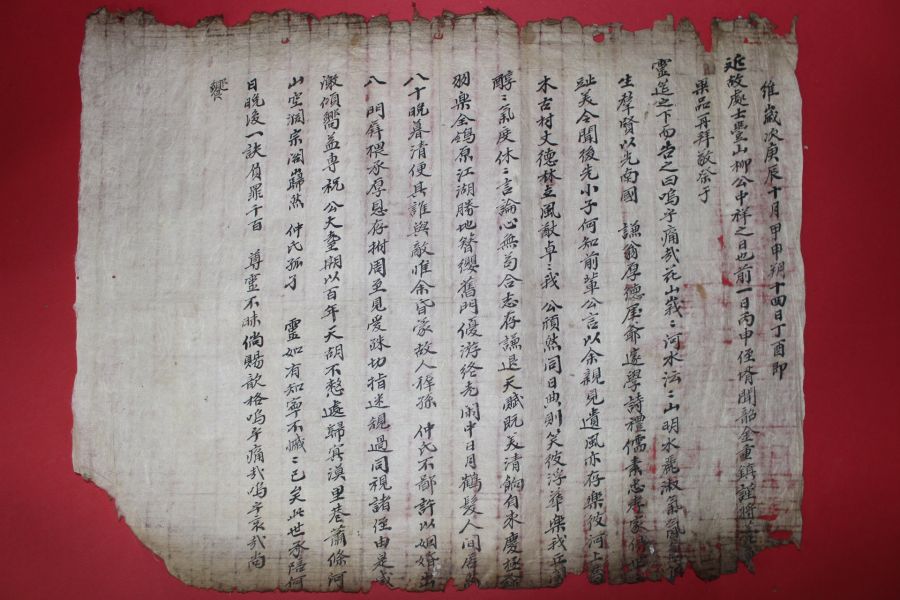 維歲次庚辰十月甲申朔十四日丁酉即
近故處士豊山柳公中祥之日也前一日丙申侄壻聞韶金重鎭謹將
果品再拜敬祭于
靈筵之下而告之曰嗚乎痛哉花山峩〻河水泫〻山明水麗淑氣
生羣賢以光南國 謙翁厚德屋爺邃學詩禮儒素忠孝家傳
趾美令聞後先小子何知前輩公言以余親見遺風亦存樂彼河上
木古村丈德林立風猷卓〻我 公頎然同日典則笑彼浮華樂我
醇〻氣度休〻言論心無苟合志存謙退天賦旣美淸餉自來慶極
羽樂全鴒原江湖勝地簪纓舊門優游終老閑中日月鶴髮人間居然
八十晩暮淸便具誰與敵惟余昏蒙故人稚孫 仲氏不鄙許以姻婚出
入 門屛猥承厚恩存拊周至見愛殊切指迷規過同視諸侄由是感
激傾嚮益專祝公大耋期以百年天胡不憗遽歸冥漠里巷蕭條河
山空濶宗祊巋然 仲氏孤孑 靈如有知寧不慽〻已矣此世承陪何
日晩後一訣負罪千百 尊靈不昧倘賜歆格嗚乎痛哉嗚乎哀哉尙
饗